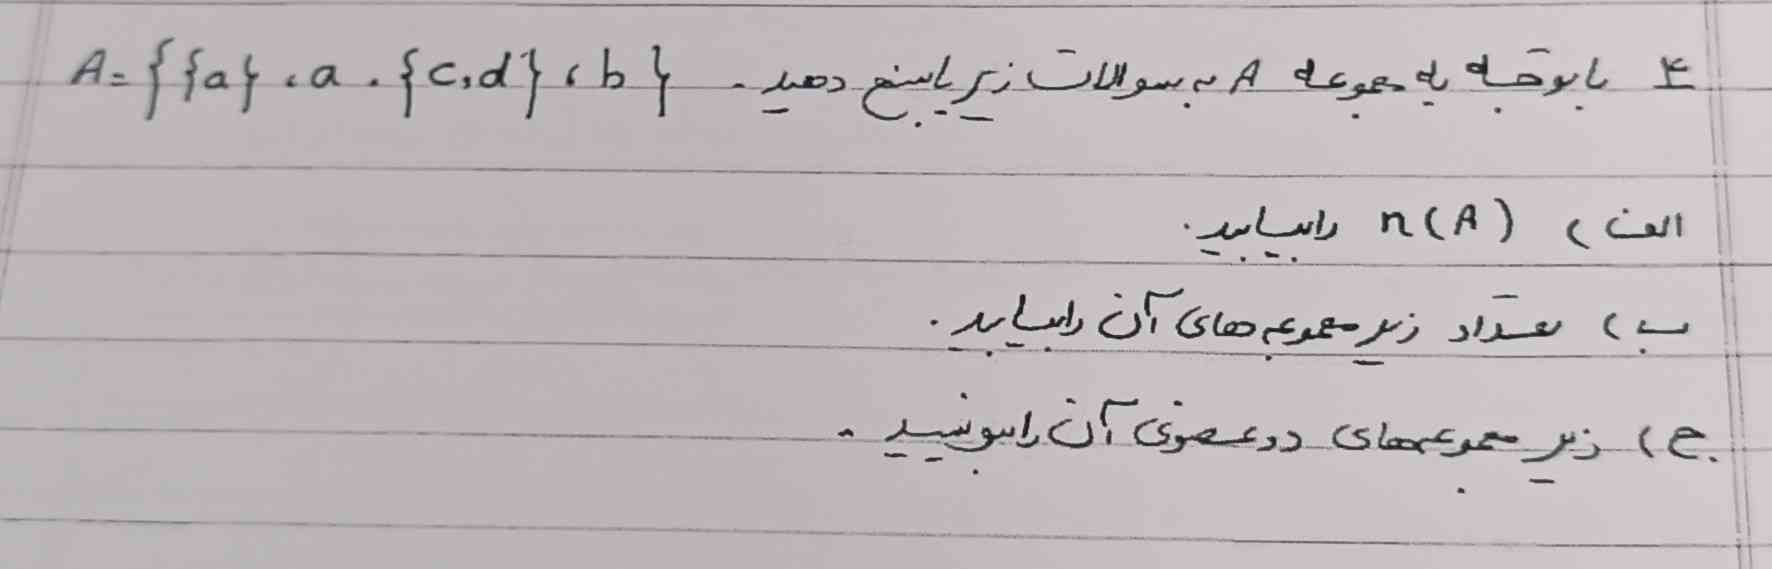 ۴ با توجه به مجموعه A به سوالات زیر پاسخ دهید. A={{a}، a، {c,d}، b}
الف) n(A) را بیابید.
ب) تعداد زیر مجموعه های آن را بیابید.
ج) زیر مجموعه‌های دو عضوی آن را بنویسید.